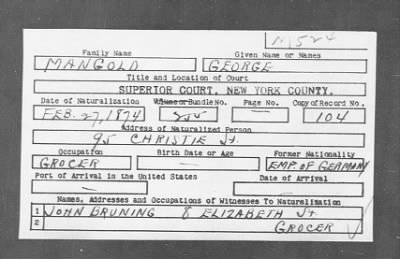 M524
Family Name Given Name or Names
MANGOLD GEORGE
Title and Location of Court
SUPERIOR COURT, NEW YORK COUNTY.
Date of Naturalization Volume or Bundle No. Page No. Copy of Record No.
FEB. 27, 1874 255 — 104
Address of Naturalized Person
95 CHRISTIE St.
Occupation Birth Date or Age Former Nationality
GROCER — EMP. OF GERMANY
Port of Arrival in the United States Date of Arrival
— —
Names, Addresses and Occupations of Witnesses To Naturalization
1 JOHN BRUNING 8 ELIZABETH St
2 GROCER